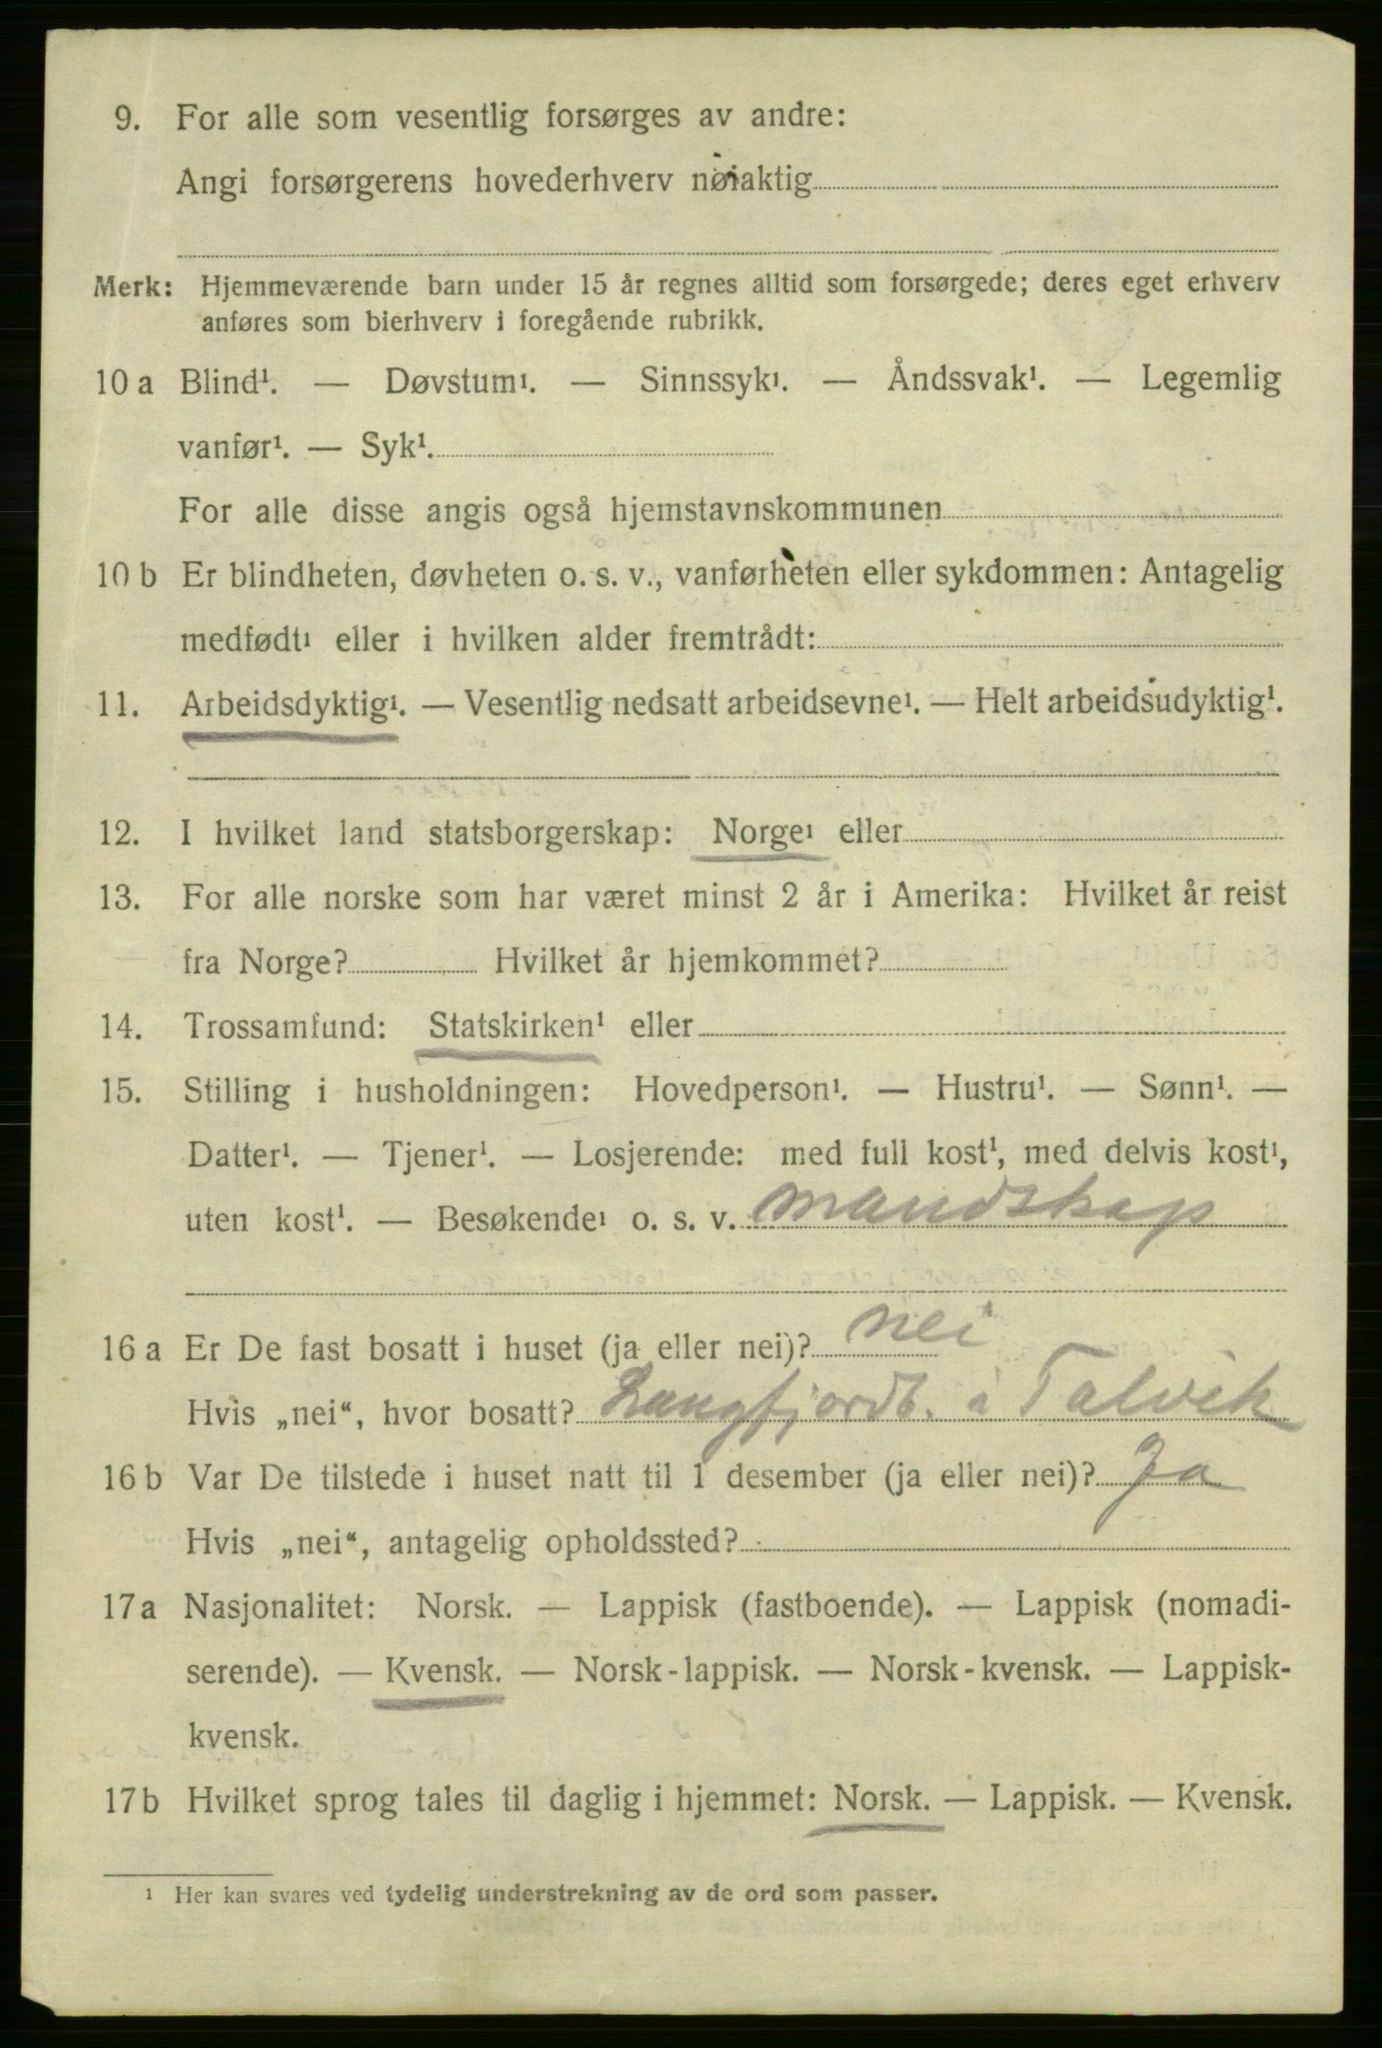 9. For alle som vesentlig forsørges av andre:
Angi forsørgerens hovederhverv nøiaktig
Merk: Hjemmeværende barn under 15 år regnes alltid som forsørgede; deres eget erhverv
anføres som bierhverv i foregående rubrikk.
10 a Blind¹. — Døvstum¹. — Sinnssyk¹. — Åndssvak¹. — Legemlig
vanfør¹. — Syk¹.
For alle disse angis også hjemstavnskommunen
10 b Er blindheten, døvheten o. s. v., vanførheten eller sykdommen: Antagelig
medfødt¹ eller i hvilken alder fremtrådt:
11. Arbeidsdyktig¹. — Vesentlig nedsatt arbeidsevne¹. — Helt arbeidsudyktig¹.
12. I hvilket land statsborgerskap: Norge¹ eller
13. For alle norske som har været minst 2 år i Amerika: Hvilket år reist
fra Norge? Hvilket år hjemkommet?
14. Trossamfund: Statskirken¹ eller
15. Stilling i husholdningen: Hovedperson¹. — Hustru¹. — Sønn¹. —
Datter¹. — Tjener¹. — Losjerende: med full kost¹, med delvis kost¹,
uten kost¹. — Besøkende¹ o. s. v. mandskap
16 a Er De fast bosatt i huset (ja eller nei)? nei
Hvis „nei“, hvor bosatt? Langfjordb. i Talvik
16 b Var De tilstede i huset natt til 1 desember (ja eller nei)? Ja
Hvis „nei“, antagelig opholdssted?
17 a Nasjonalitet: Norsk. — Lappisk (fastboende). — Lappisk (nomadi-
serende). — Kvensk. — Norsk-lappisk. — Norsk-kvensk. — Lappisk-
kvensk.
17 b Hvilket sprog tales til daglig i hjemmet: Norsk. — Lappisk. — Kvensk.
¹ Her kan svares ved tydelig understrekning av de ord som passer.